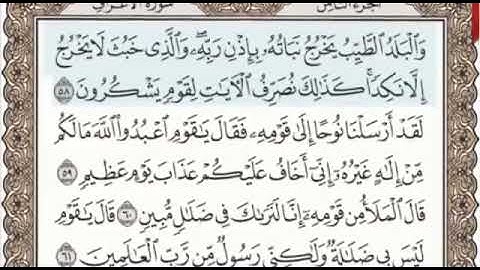 سورة الأعراف الجزء الثامن
وَالْبَلَدُ الطَّيِّبُ يَخْرُجُ نَبَاتُهُ بِإِذْنِ رَبِّهِ وَالَّذِي خَبُثَ لَا يَخْرُجُ
إِلَّا نَكِدًا كَذَٰلِكَ نُصَرِّفُ الْآيَاتِ لِقَوْمٍ يَشْكُرُونَ ٥٨
لَقَدْ أَرْسَلْنَا نُوحًا إِلَىٰ قَوْمِهِ فَقَالَ يَٰقَوْمِ اعْبُدُوا اللَّهَ مَا لَكُم
مِّنْ إِلَٰهٍ غَيْرُهُ إِنِّي أَخَافُ عَلَيْكُمْ عَذَابَ يَوْمٍ عَظِيمٍ ٥٩
قَالَ الْمَلَأُ مِن قَوْمِهِ إِنَّا لَنَرَىٰكَ فِي ضَلَٰلٍ مُّبِينٍ ٦٠ قَالَ يَٰقَوْمِ
لَيْسَ بِي ضَلَٰلَةٌ وَلَٰكِنِّي رَسُولٌ مِّن رَّبِّ الْعَٰلَمِينَ ٦١